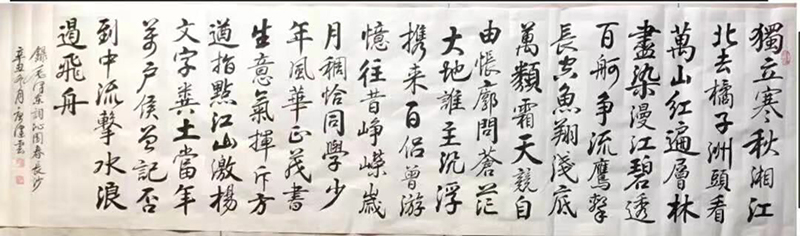 獨立寒秋湘江
北去橘子洲頭看
萬山紅遍層林
盡染漫江碧透
百舸争流鷹擊
長空魚翔淺底
萬類霜天競自
由悵廓問蒼茫
大地誰主沉浮
携来百侣曾游
憶往昔峥嵘歲
月稠恰同學少
年風華正茂書
生意氣揮斥方
遒指點江山激揚
文字糞土當年
萬户侯曾記否
到中流擊水浪
遏飛舟
錄毛澤東詞沁園春長沙
辛丑年